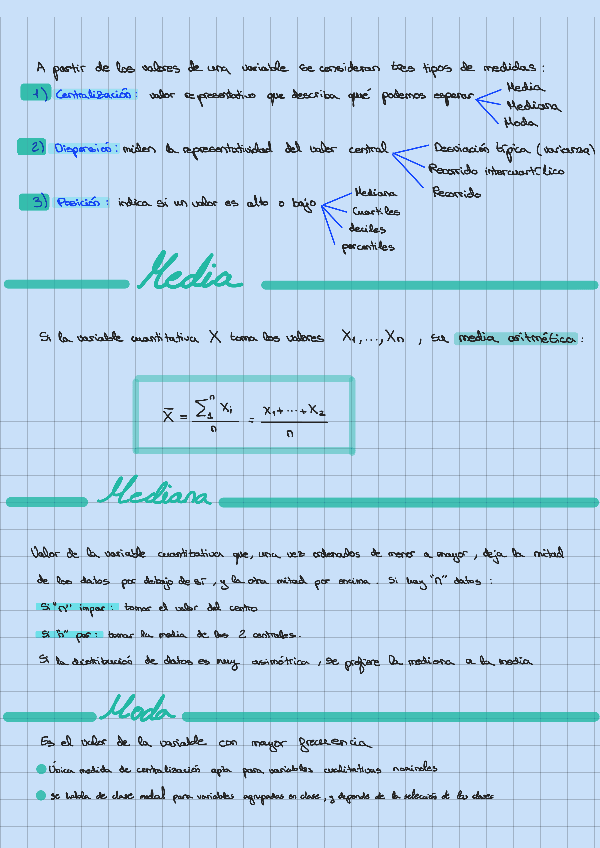 A partir de los valores de una variable se consideran tres tipos de medidas:
1) Centralización: valor representativo que describa qué podemos esperar
Media
Mediana
Moda
2) Dispersión: miden la representatividad del valor central
Desviación típica (varianza)
Recorrido intercuartílico
Recorrido
3) Posición: indica si un valor es alto o bajo
Mediana
Cuartiles
deciles
percentiles
Media
Si la variable cuantitativa X toma los valores X₁,...,Xn, su media aritmética:
X̄ = ∑₁ⁿ Xi / n = X₁+...+X₂ / n
Mediana
Valor de la variable cuantitativa que, una vez ordenados de menor a mayor, deja la mitad
de los datos por debajo de sí, y la otra mitad por encima. Si hay "n" datos:
Si "n" impar: tomar el valor del centro
Si "n" par: tomar la media de los 2 centrales.
Si la distribución de datos es muy asimétrica, se prefiere la mediana a la media
Moda
Es el valor de la variable con mayor frecuencia
Única medida de centralización apta para variables cualitativas nominales
se habla de clase modal para variables agrupadas en clase, y depende de la selección de las clases